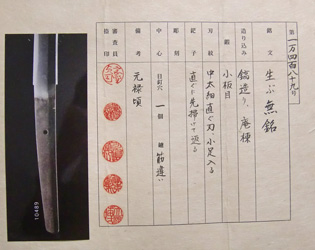 第一万四百八十九号
銘文 生ぶ無銘
造り込み 鎬造り、庵棟
鍛 小板目
刃紋 中太細直ぐ刃、小足入る
鋩子 直ぐに先掃けて返る
彫刻
中心 目釘穴 一個 鑢 筋違い
備考 元禄頃
審査員
捺印
10489